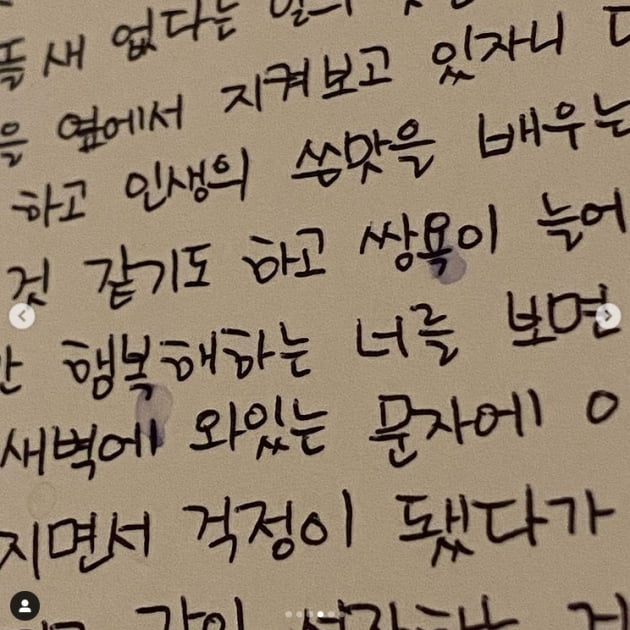 새 없다는
을 옆에서 지켜보고 있자니
하고 인생의 씁맛을 배우는
것 같기도 하고 쌍욕이 늘어
행복해하는 너를 보면
새벽에 와있는 문자에
지면서 걱정이 됐다가